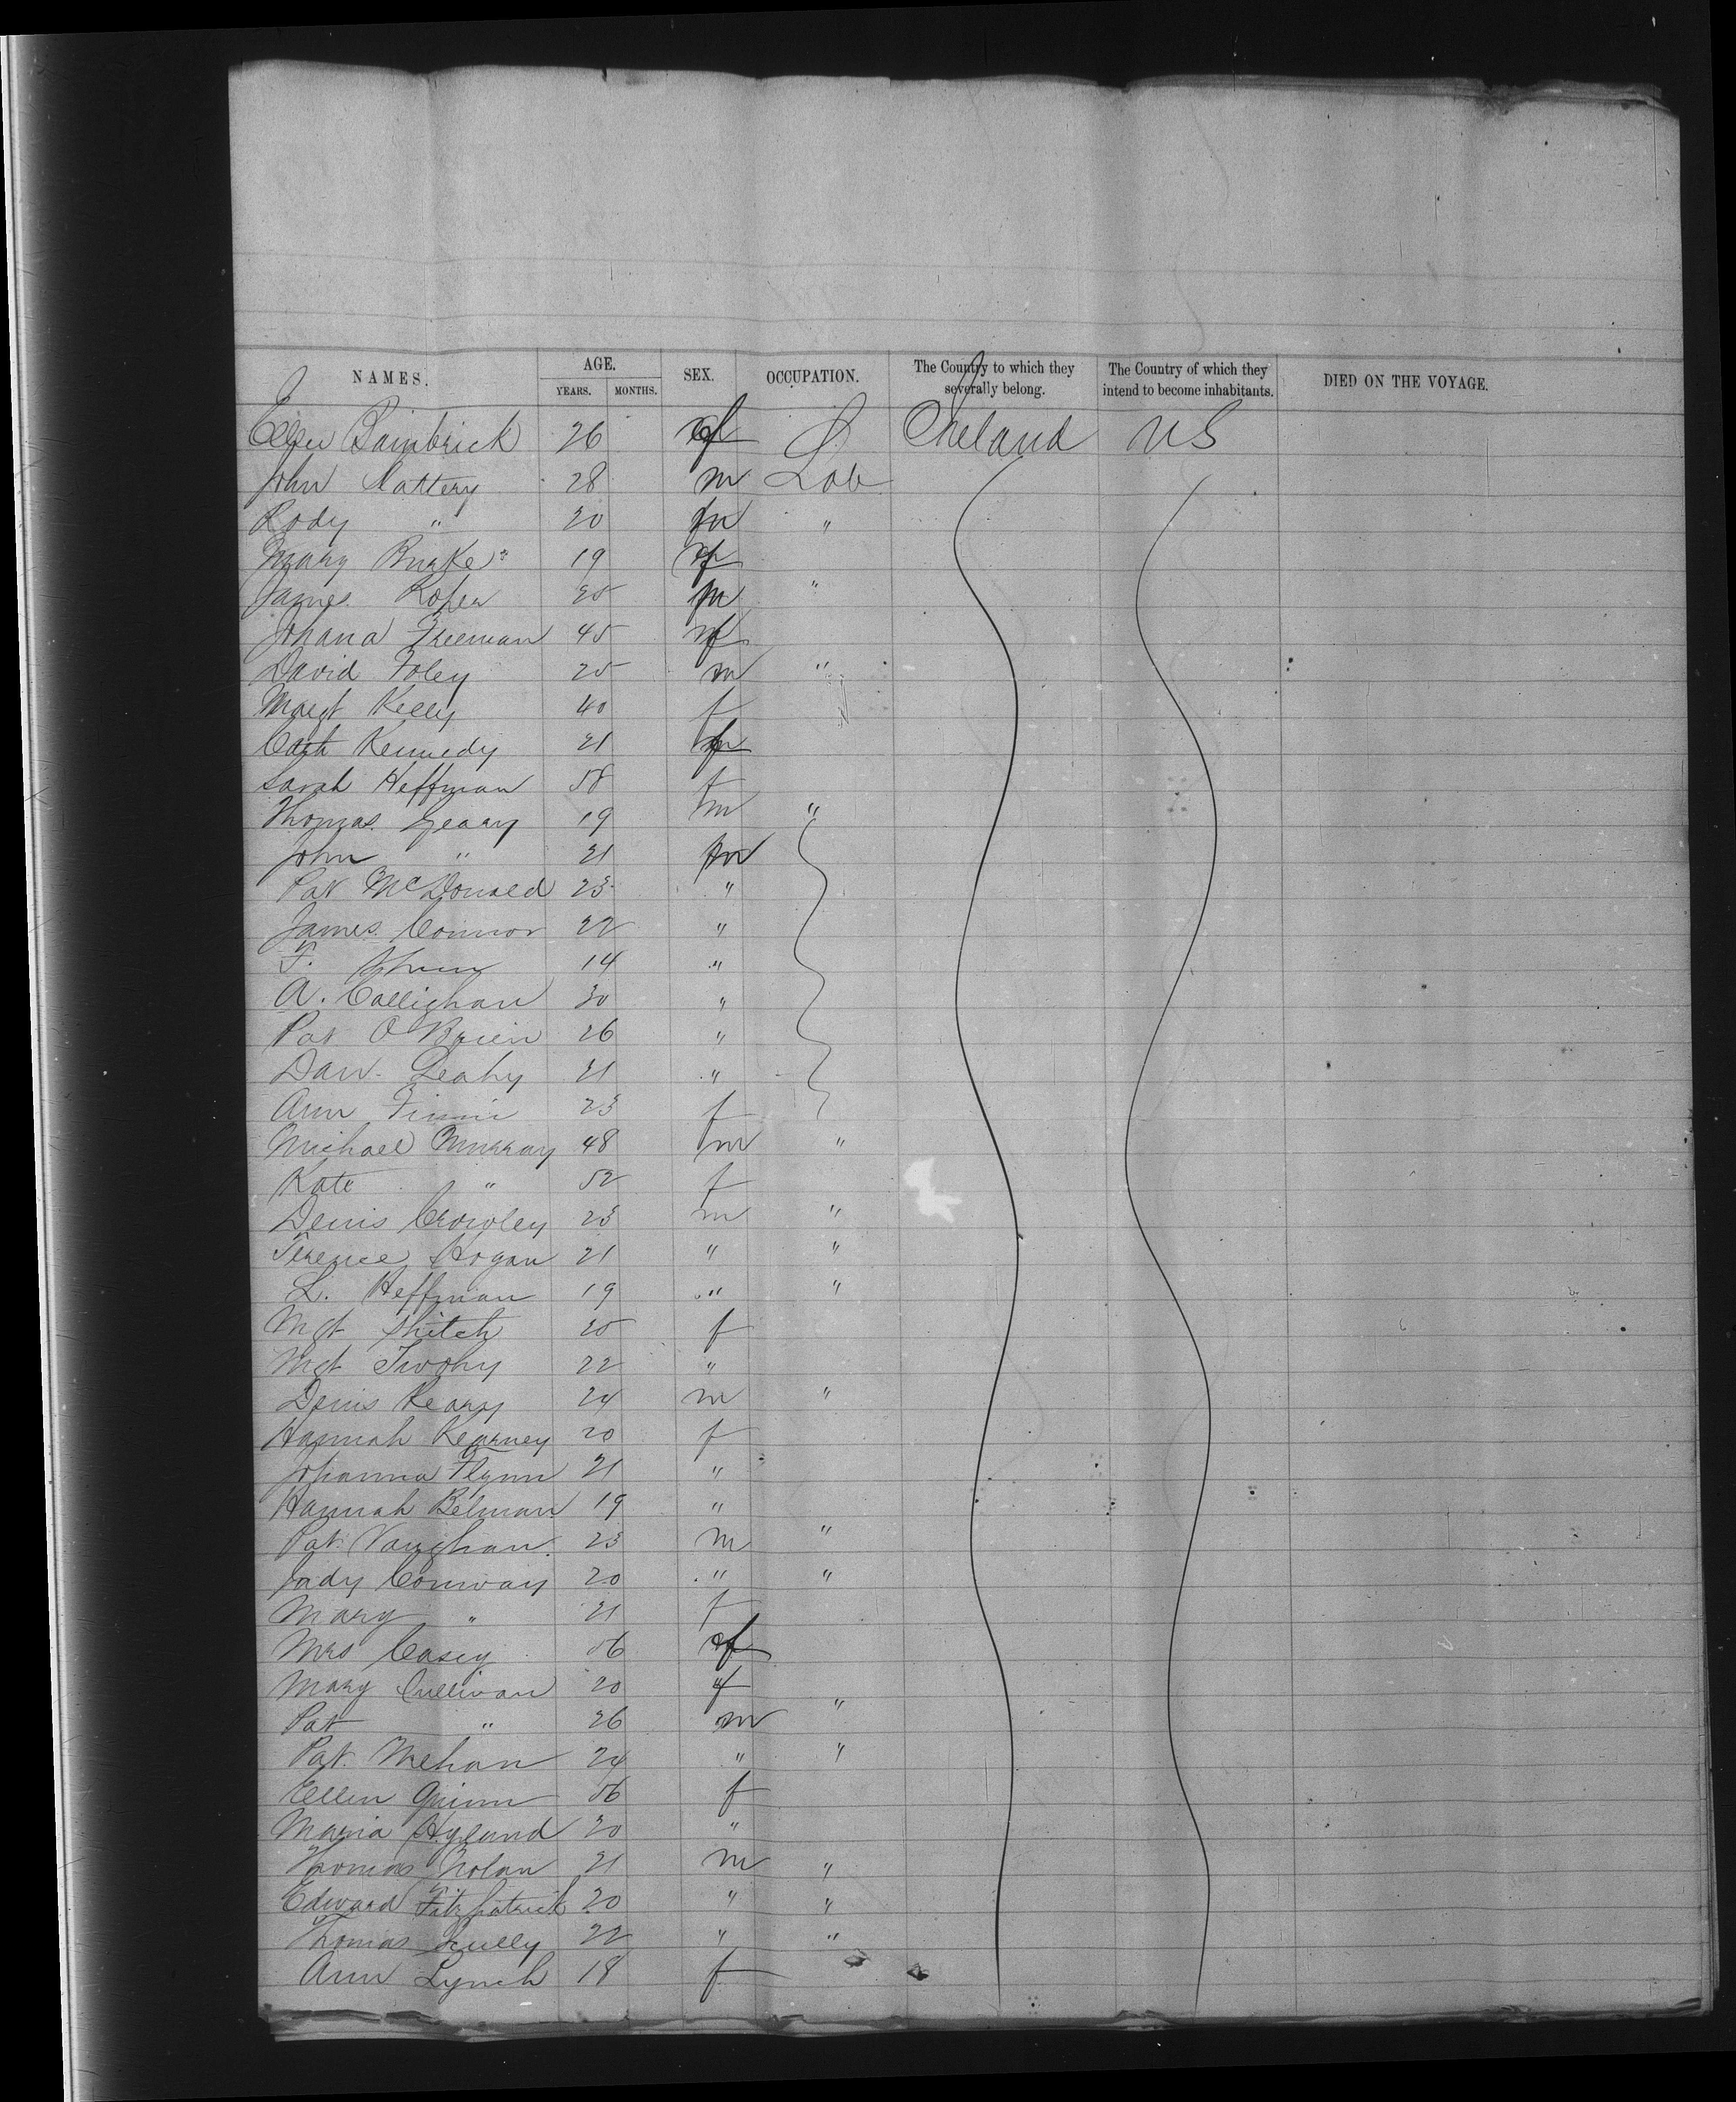 NAMES. AGE. SEX. OCCUPATION. The Country to which they severally belong. The Country of which they intend to become inhabitants. DIED ON THE VOYAGE.
YEARS. MONTHS.
Ellen Bambrick 26 f Ireland US
John Slattery 28 m Lab
Rody " 20 m "
Mary Burke 19 f
James 25 m "
Johana Freeman 45 f
David Foley 25 m "
Margt Kelly 40 f
Cath Kennedy 21 f
Sarah Heffman 58 f
Thomas Geary 19 m "
John " 21 m
Pat McDonald 23 "
James Connor 22 "
F. 14 "
A. Callighan 30 "
Pat O Brien 26 "
Dan. Leahy 21 "
Ann 23 f
Michael Murray 48 m "
Kate " 52 f
Denis Crowley 23 m "
Terence Hogan 21 " "
L. Heffman 19 " "
Mgt 25 f
Mgt Twohy 22 "
Denis Keary 24 m "
Hannah Kearney 20 f
Johanna Flynn 21 "
Hannah Belman 19 "
Pat Vaughan. 23 m "
Jady Conway 20 " "
Mary " 21 f
Mrs Casey 56 f
Mary Sullivan 20 f
Pat " 26 m "
Pat. Mehan 24 " "
Ellen Quinn 56 f
Maria Hyland 20 "
Thomas Nolan 21 m "
Edward Fitzpatrick 20 " "
Thomas Scully 22 " "
Ann Lynch 18 f